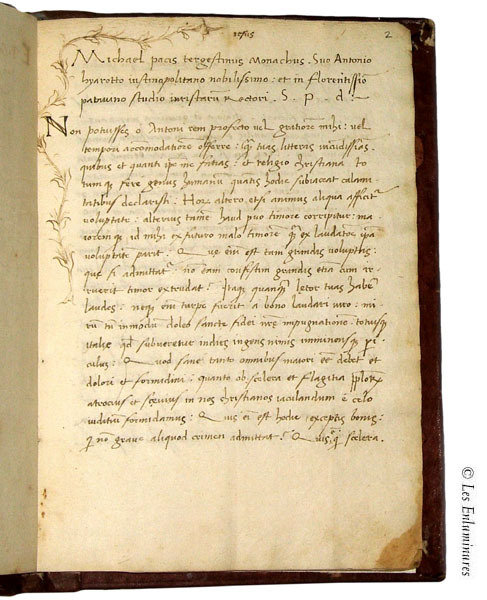 iesus
2
Michael pacis tergestinus Monachus. Suo Antonio
hyarotto iustinopolitano nobilissimo: et in florentissio
patauino studio iuristarum Rectori. S. p. d.
Non potuisses o Antoni rem profecto uel gratiorem mihi: uel
tempori accomodatiorem offerre: tuas litteras
quibus et quanti me facias: et religio christiana to
tum fere genus humanum quantis hodie subiaceat calami
tatibus declarasti. Hoc altero etsi animus aliqua afficitur
uoluptate: alterius tamen haud puo timore corripitur: ma
id mihi ex futuro malo timorem ex laudatione ipsa
uoluptate parit. Que est tam grandis uoluptas:
que si admittatur no eam confestim grandis etiam
ruerit timor extrudat? Itaque quanquam letor tuas habere
laudes: neque turpe fuerit a bono laudari uiro: mi
rum in modum doleo sancte fidei nre impugnatione: totiusque
italie subueretur indies ingens nimis imminensque pi
culus: Quod sane tanto omnibus maiori esse debet et
dolori et formidini: quanto ob scelera et flagitia
atrocius et seuius in nos christianos iaculandum e celo
iuditium formidamus: Quis est hodie exceptis bonis:
qui non graue aliquod crimen admittat? Quis scelera.
© Les Enluminures